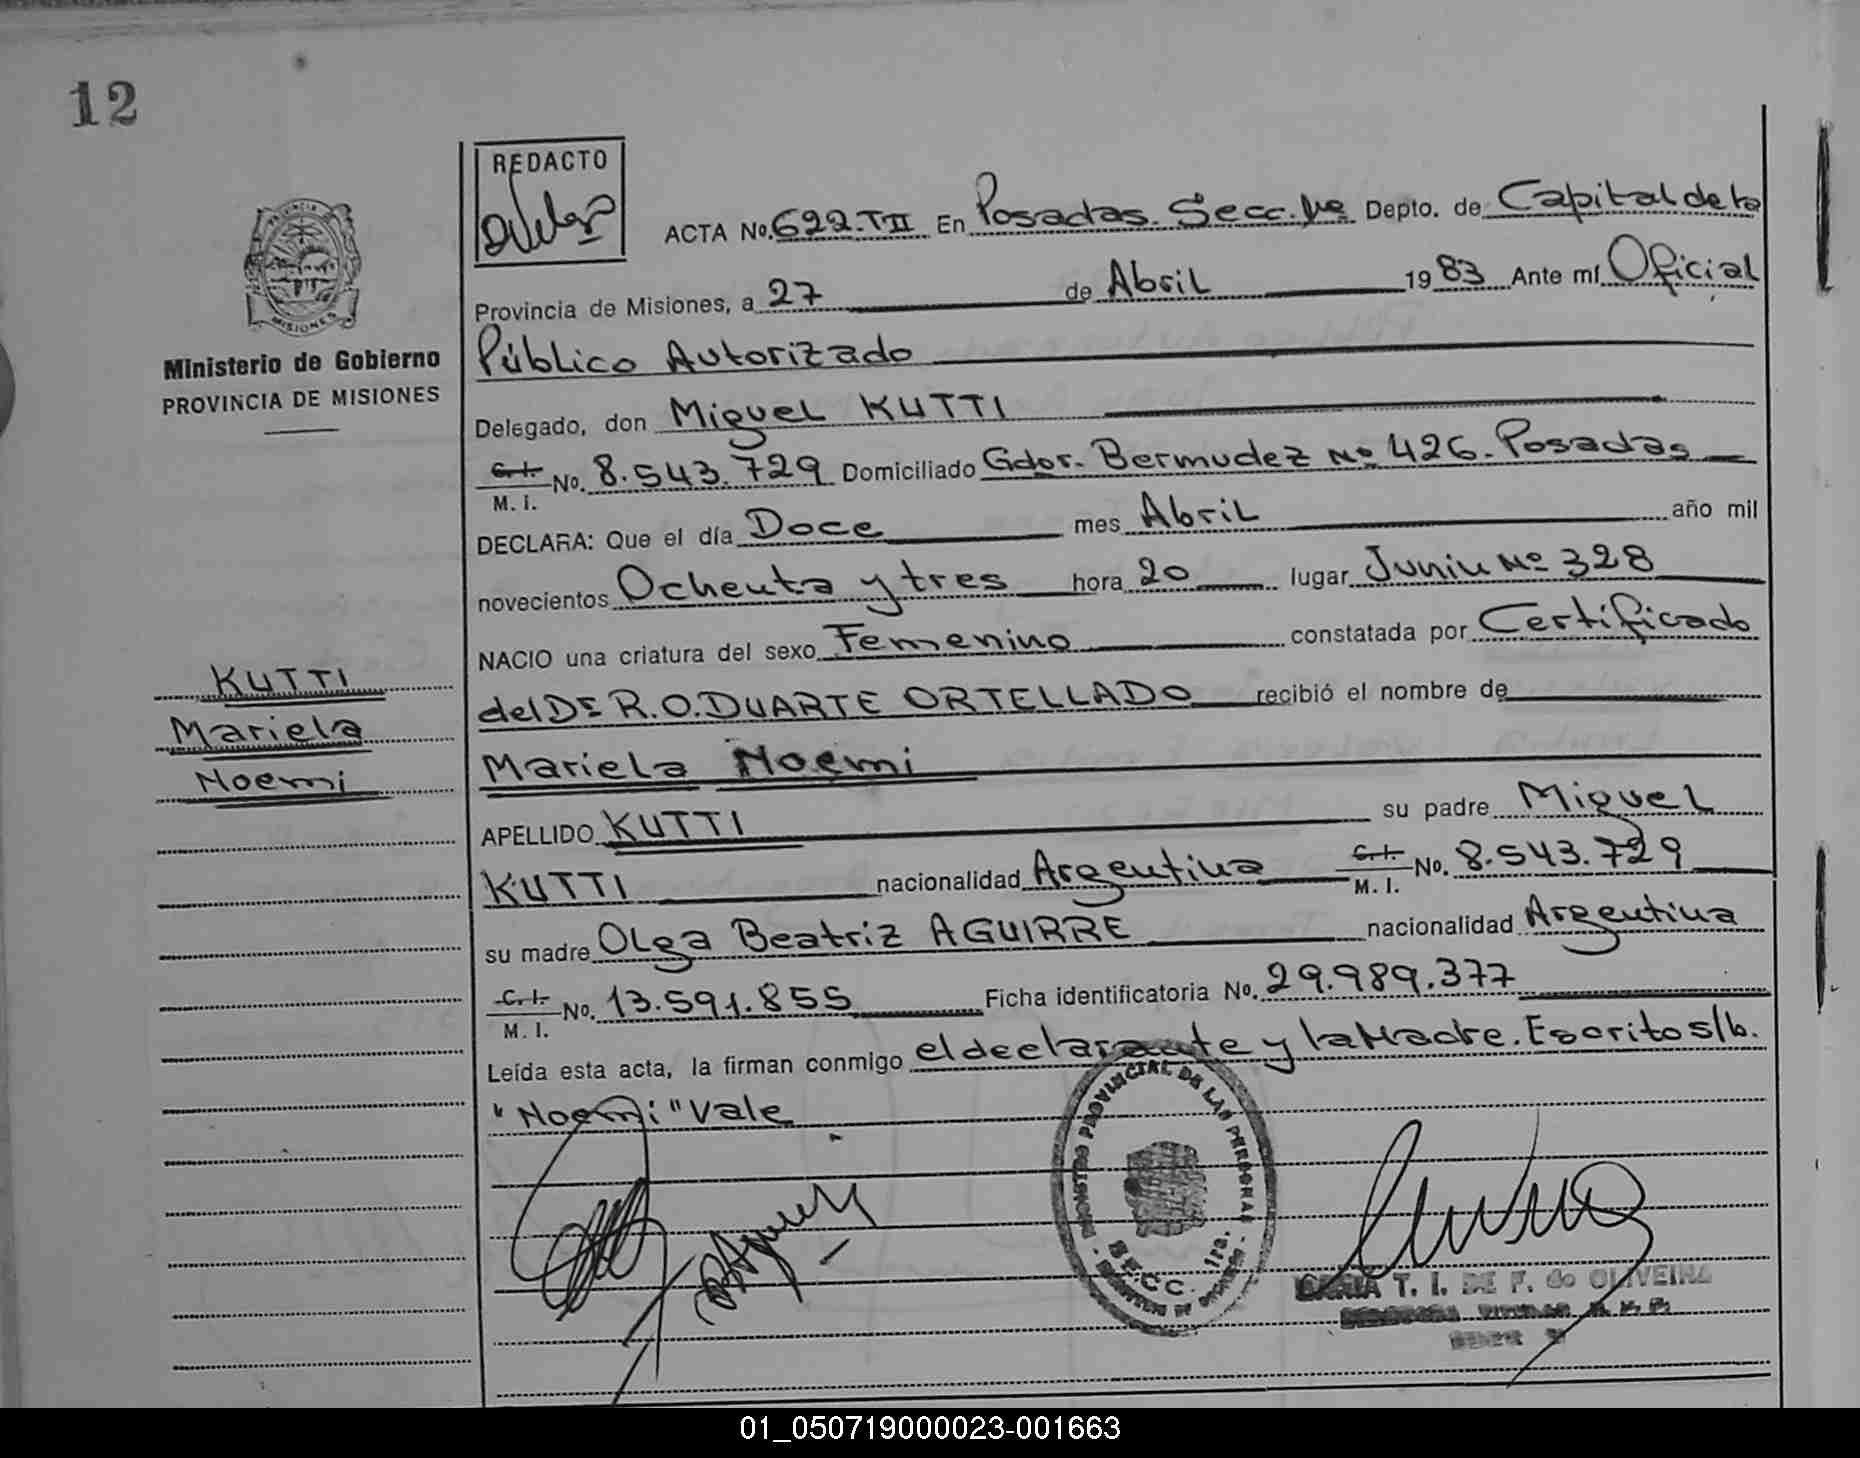 12
REDACTO
ACTA No. 622.TII En Posadas. Secc. 1ra Depto. de Capital de la
Provincia de Misiones, a 27 de Abril 1983 Ante mí Oficial
Público Autorizado
Delegado, don Miguel KUTTI
C.I. M. I. No. 8.543.729 Domiciliado Gdor. Bermudez Nº 426. Posadas
DECLARA: Que el día Doce mes Abril año mil
novecientos Ochenta y tres hora 20 lugar Junin Nº 328
NACIO una criatura del sexo Femenino constatada por Certificado
del Dr R.O. DUARTE ORTELLADO recibió el nombre de
Mariela Noemi
APELLIDO KUTTI su padre Miguel
KUTTI nacionalidad Argentina C.I. M. I. No. 8.543.729
su madre Olga Beatriz AGUIRRE nacionalidad Argentina
C.I. M. I. No. 13.591.855 Ficha identificatoria No. 29.989.377
Leída esta acta, la firman conmigo el declarante y la Madre. Escrito s/b.
"Noemi" Vale
Ministerio de Gobierno
PROVINCIA DE MISIONES
KUTTI
Mariela
Noemi
MISIONES
PROVINCIAL DE LAS PERSONAS
SECC. 1ra.
T. I. DE F. de OLIVEIRA
01_050719000023-001663